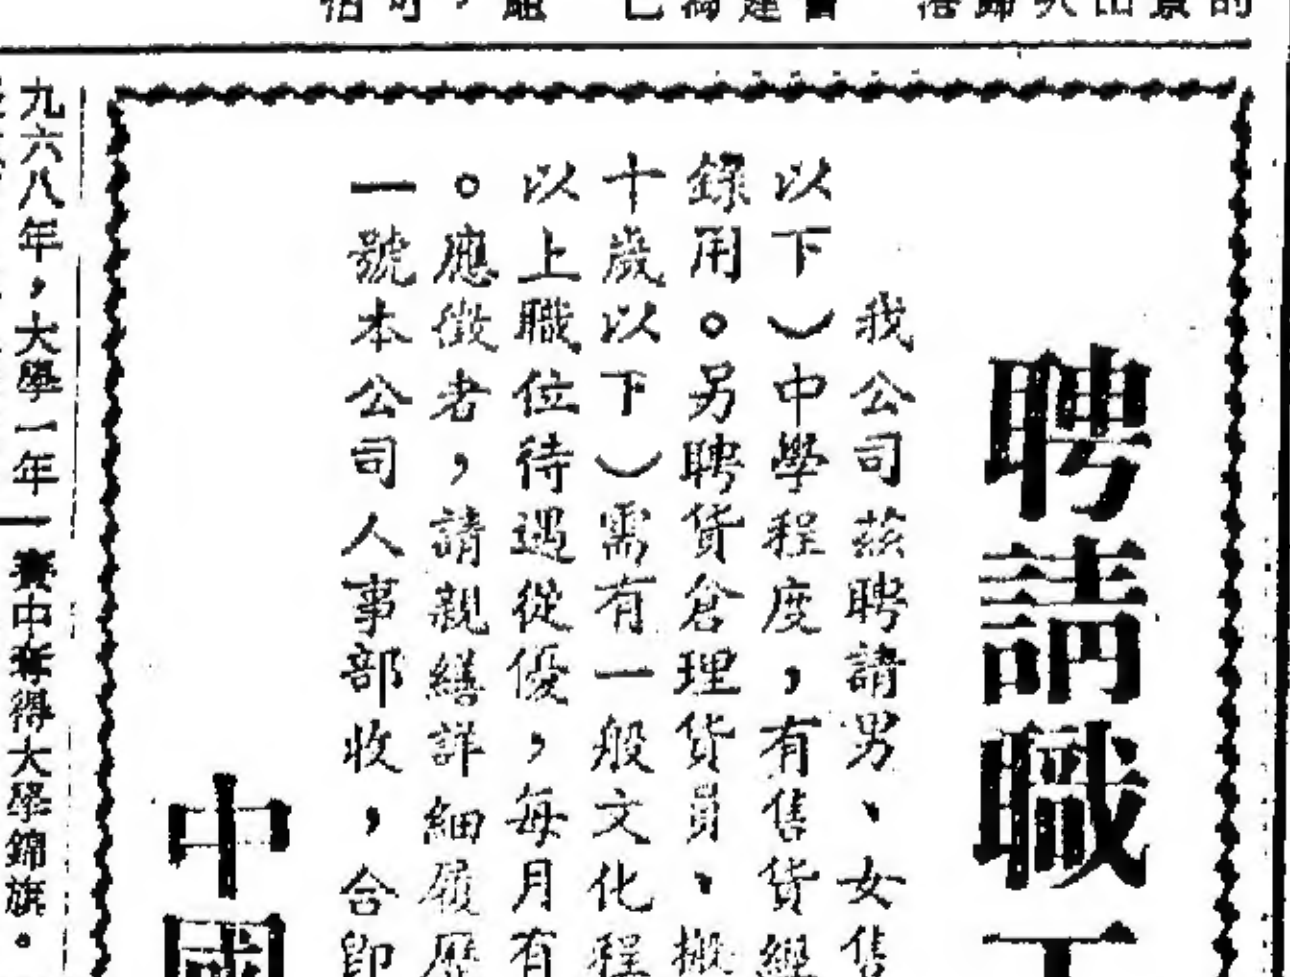 聘請職工
我公司茲聘請男、女售
以下）中學程度，有售貨經
錄用。另聘貨倉理貨員、搬
十歲以下）需有一般文化程
以上職位待遇從優，每月有
。應徵者，請親繕詳細履歷
一號本公司人事部收，合卽
中國
九六八年，大學一年
賽中奪得大學錦旗。